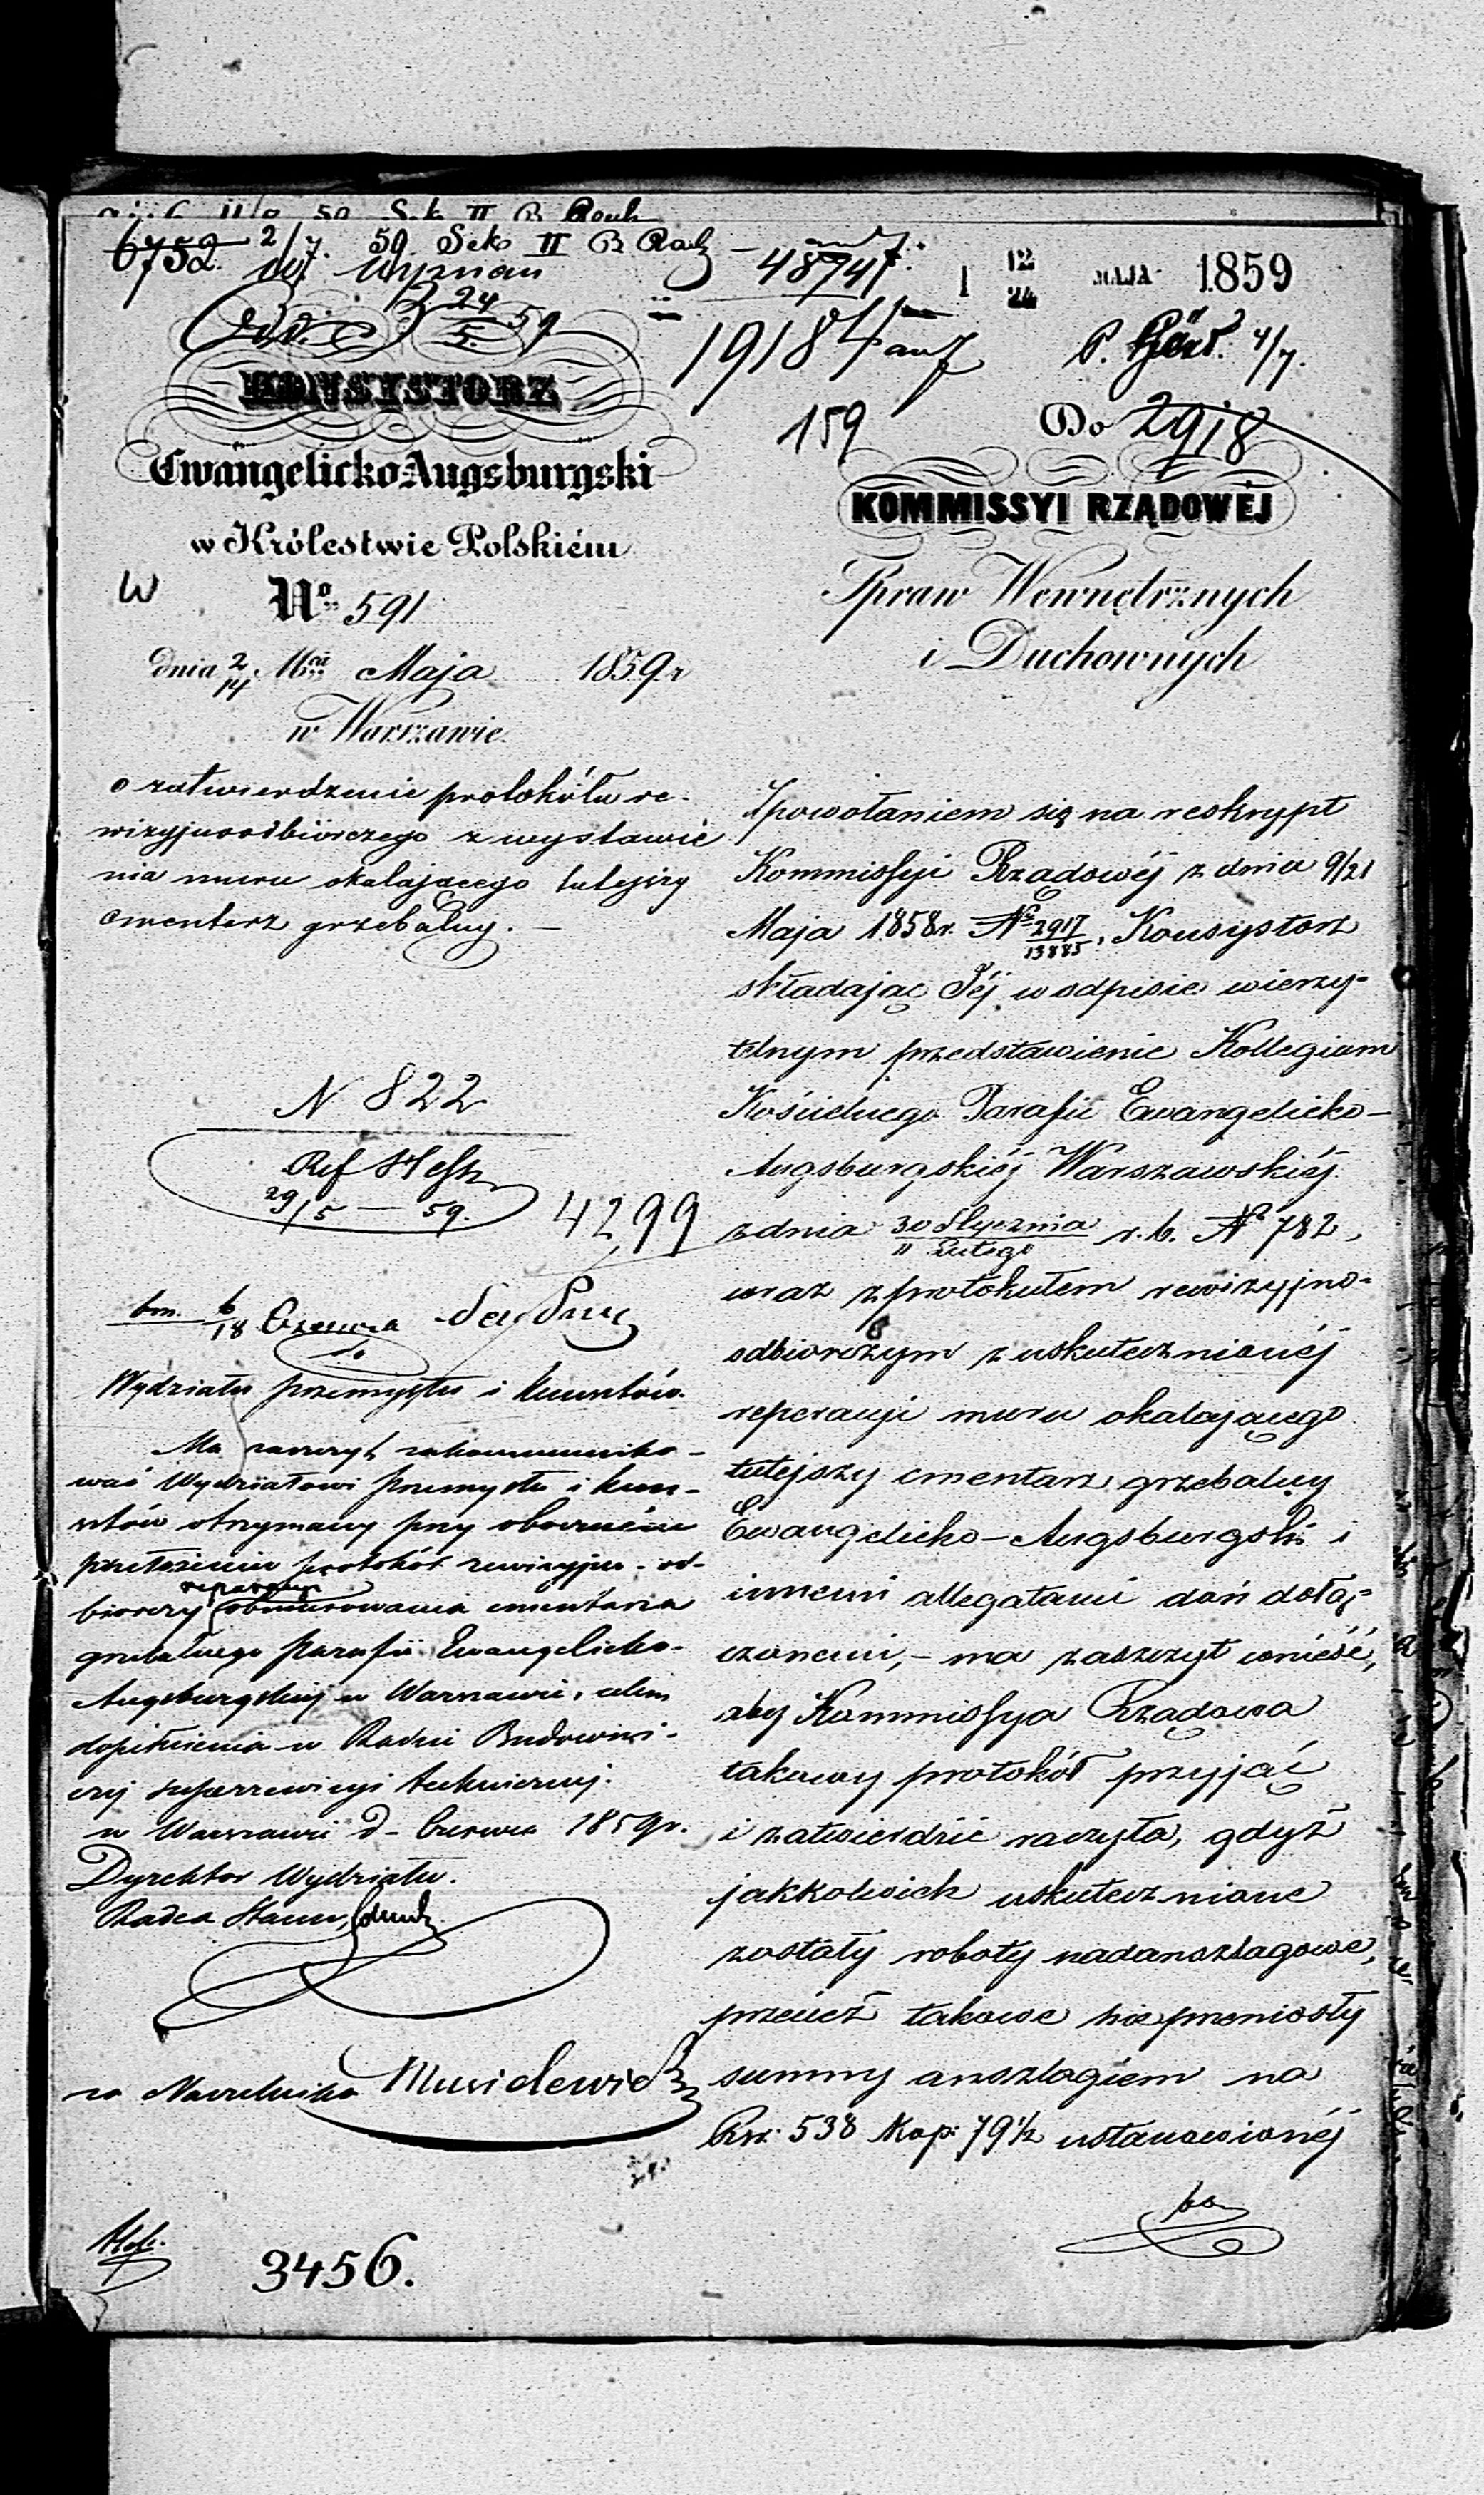 6752. 2/7. 59 Sek II B Rach
Wyznań
24/5 59
48747
1 12/24 MAJA 1859
1918
P. 4/7.
159
Do 2918
KONSYSTORZ
Ewangelicko Augsburgski
w Królestwie Polskiém
W
No 591
dnia 2/14. 16 Maja 1859 r
w Warszawie.
o zatwierdzenie protokółu re-
wizyjnoodbiorczego z wystawie
nia muru okalającego tutejszy
cmentarz grzebalny. —
N 822
Ref
29/5 — 59.
4299
6/18 Czerwca
Do
Wydziału przemysłu i kunsztów.
Ma zaszczyt zakommuniko-
wać Wydziałowi przemysłu i kun-
sztów otrzymany przy obocznem
przełożeniu protokół rewizyjno-od-
biorczy reparacyi obmurowania cmentarza
grzebalnego Parafii Ewangelicko-
Augsburgskiej w Warszawie, celem
dopełnienia w Radzie Budowni-
czej superrewizyi technicznej.
w Warszawie d - Czerwca 1859 r.
Dyrektor Wydziału.
Radca Stanu,
za Naczelnika
3456.
KOMMISSYI RZĄDOWÉJ
Spraw Wewnętrznych
i Duchownych
Z powołaniem się na reskrypt
Kommissyi Rządowéj z dnia 9/21
Maja 1858 r. No 2917/13885, Konsystorz
składając Jéj w odpisie wierzy-
telnym przedstawienie Kollegium
Kościelnego Parafii Ewangelicko-
Augsburgskiéj Warszawskiéj
z dnia 30 Stycznia/11 Lutego r. b. No 782,
wraz z protokułem rewizyjno-
odbiorczym z uskutecznionéj
reperacyi muru okalającego
tutejszy cmentarz grzebalny
Ewangelicko-Augsburgski i
innemi allegatami doń dołą-
czonemi, - ma zaszczyt wnieść,
aby Kommissya Rządowa
takowy protokół przyjąć
i zatwierdzić raczyła, gdyż
jakkolwiek uskutecznione
zostały roboty nadanszlagowe,
przecież takowe nie przeniosły
summy anszlagiem na
Rsr: 538 Kop: 79½ ustanowionéj